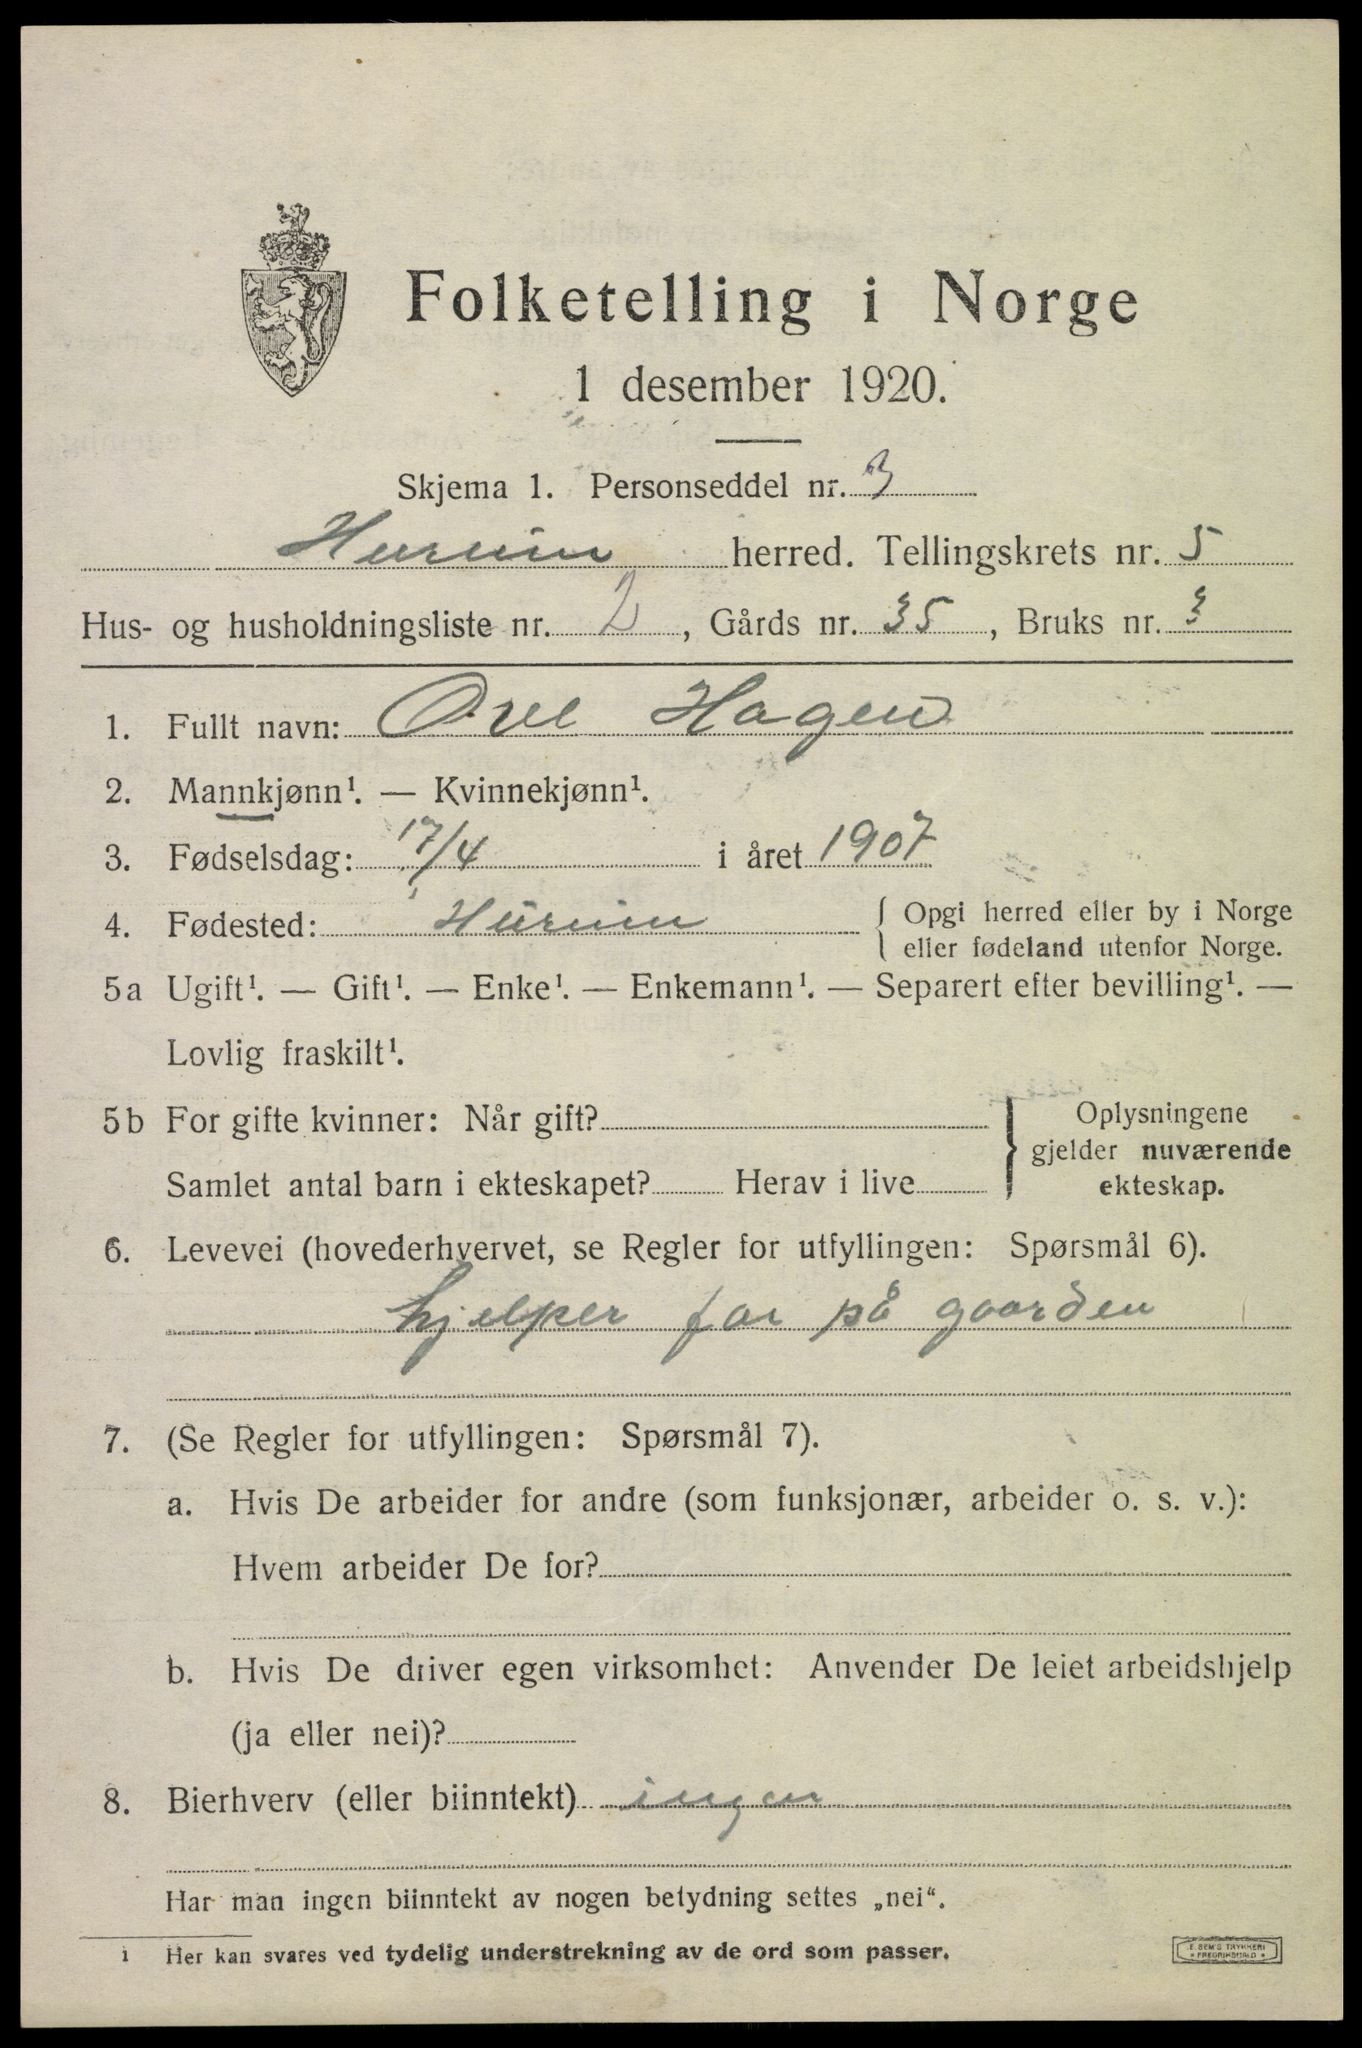 Folketelling i Norge
1 desember 1920.
Skjema 1. Personseddel nr. 3
Hurum herred. Tellingskrets nr. 5
Hus- og husholdningsliste nr. 2, Gårds nr. 35, Bruks nr. 3
1. Fullt navn: Ove Hagen
2. Mannkjønn¹. — Kvinnekjønn¹.
3. Fødselsdag: 17/4 i året 1907
4. Fødested: Hurum { Opgi herred eller by i Norge
eller fødeland utenfor Norge.
5a Ugift¹. — Gift¹. — Enke¹. — Enkemann¹. — Separert efter bevilling¹. —
Lovlig fraskilt¹.
5b For gifte kvinner: Når gift?
Samlet antal barn i ekteskapet? Herav i live
} Oplysningene
gjelder nuværende
ekteskap.
6. Levevei (hovederhvervet, se Regler for utfyllingen: Spørsmål 6).
hjelper far på gaarden
7. (Se Regler for utfyllingen: Spørsmål 7).
a. Hvis De arbeider for andre (som funksjonær, arbeider o. s. v.):
Hvem arbeider De for?
b. Hvis De driver egen virksomhet: Anvender De leiet arbeidshjelp
(ja eller nei)?
8. Bierhverv (eller biinntekt) ingen
Har man ingen biinntekt av nogen betydning settes „nei“.
1 Her kan svares ved tydelig understrekning av de ord som passer.
E. SEMS TRYKKERI
* FREDRIKSHALD *